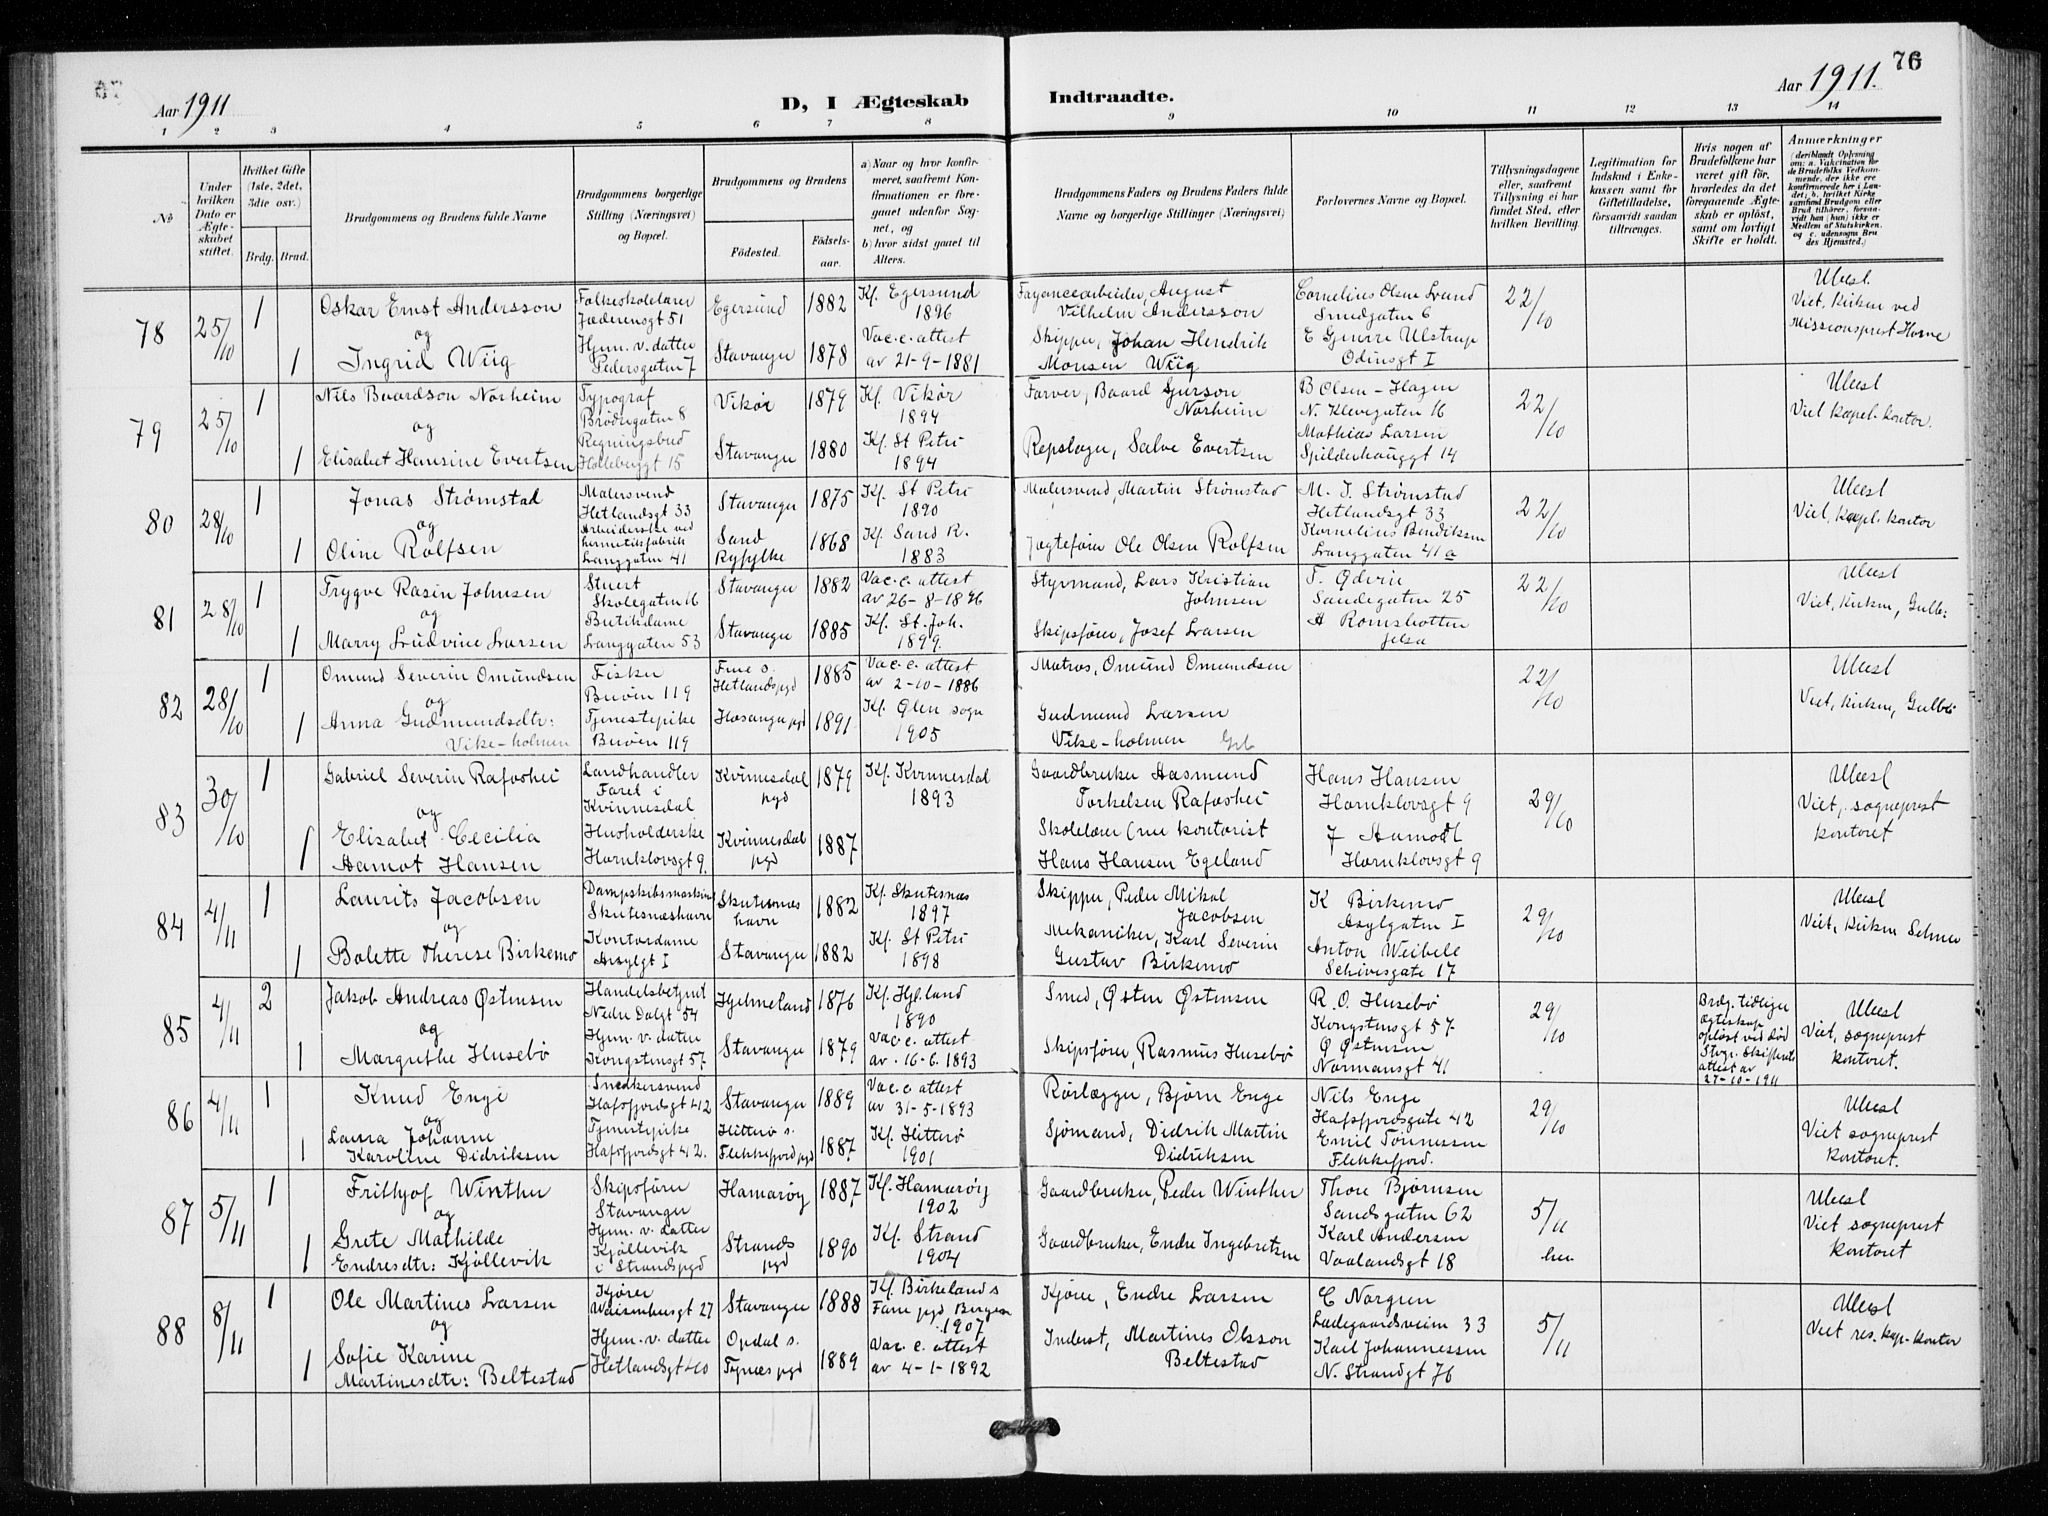 76
Aar 1911
D, I Ægteskab Indtraadte.
Aar 1911.
1 2 3 4 5 6 7 8 9 10 11 12 13 14
No
Under hvilken Dato er Ægteskabet stiftet.
Hvilket Gifte (1ste, 2det, 3die osv.)
Brdg. Brud.
Brudgommens og Brudens fulde Navne
Brudgommens borgerlige Stilling (Næringsvei) og Bopæl.
Brudgommens og Brudens
Fødested.
Fødselsaar.
a) Naar og hvor konfirmeret, saafremt Konfirmationen er foregaaet udenfor Sognet, og
b) hvor sidst gaaet til Alters.
Brudgommens Faders og Brudens Faders fulde Navne og borgerlige Stillinger (Næringsvei)
Forlovernes Navne og Bopæl.
Tillysningsdagene eller, saafremt Tillysning ei har fundet Sted, efter hvilken Bevilling.
Legitimation for Indskud i Enkekassen samt for Giftetilladelse, forsaavidt saadan tiltrænges.
Hvis nogen af Brudefolkene har været gift før, hvorledes da det foregaaende Ægteskab er opløst, samt om lovligt Skifte er holdt.
Anmærkninger
(deriblandt Oplysning om: a. Vaccination for de Brudefolks Vedkommende, der ikke ere konfirmerede her i Landet; b. hvilket Kirkesamfund Brudgom eller Brud tilhører, forsaavidt han (hun) ikke er Medlem af Statskirken, og c. udensogns Brudes Hjemsted.)
78
25/10
1
Oskar Ernst Andersson
og
1
Ingrid Wiig
Folkeskolelærer
Jæderensgt 51
Hjm. v. datter
Pedersgaten 7
Egersund 1882
Stavanger 1878
Kf. Egersund
1896
Vac. c. attest
av 21-9-1881
Fayancearbeider, August
Vilhelm Andersson
Skipper, Johan Hendrik
Monsen Wiig
Cornelius Olsen Lund
Smedgaten 6
E Gjerre Ulstrup
Odinsgt I
22/10
Ulæst.
Viet, kirken ved
Missionsprest Horne
79
25/10
1
Nils Baardson Norheim
og
1
Elisabet Hansine Evertsen
Typograf
Brødregaten 8
Regningsbud
Holleberggt 15
Vikør 1879
Stavanger 1880
Kf. Vikør
1894
Kf. St Petri
1894
Farver, Baard Gjerson
Norheim
Repslager, Salve Evertsen
B Olsen-Hagen
N. Klevegaten 16
Mathias Larsen
Spilderhauggt 14
22/10
Ulæst
Viet kapel. kontor.
80
28/10
1
Jonas Strømstad
og
1
Oline Rolfsen
Malersvend
Hetlandsgt 33
Arbeiderske ved
hermetikfabrik
Langgaten 41
Stavanger 1875
Sand
Ryfylke 1868
Kf. St Petri
1890
Kf. Sand R.
1883
Malersvend, Martin Strømstad
Jægtefører Ole Olsen Rolfsen
M. J. Strømstad
Hetlandsgt 33
Kornelius Bendiksen
Langgaten 41 a
22/10
Ulæst
Viet, kapl. kontor
81
28/10
1
Trygve Rasin Johnsen
og
1
Marry Ludvine Larsen
Stuert
Skolegaten 16
Butikdame
Langgaten 53
Stavanger 1882
Stavanger 1885
Vac. c. attest
av 26-8-1896
Kf. St. Joh.
1899.
Styrmand, Lars Kristian
Johnsen
Skipsfører, Josef Larsen
T. Ødvin
Sandegaten 25
A Romsbotten
Jelsa
22/10
Ulæst
Viet, kirken, Gulb:
82
28/10
1
Omund Severin Omundsen
og
1
Anna Gudmundsdtr:
Vike-holmen
Fisker
Buøen 119
Tjenestepike
Buøen 119
Frue s.
Hetlandspgd 1885
Hosanger pgd 1891
Vac. c. attest
av 2-10-1886
Kf. Øien sogn
1905
Matros, Omund Omundsen
Gudmund Larsen
Vike-holmen Grb
22/10
Ulæst
Viet, kirken, Gulb:
83
30/10
1
Gabriel Severin Rafoshei
og
1
Elisabet Cecilia
Aamot Hansen
Landhandler
Faret i
Kvinnesdal
Husholderske
Harnklovsgt 9.
Kvinnesdal
pgd 1879
Kvinnesdal
pgd 1887
Kf. Kvinnesdal
1893
Gaardbruker Aasmund
Torkelsen Rafoshei
Skolelærer (nu kontorist
Hans Hansen Egeland
Hans Hansen
Harnklovsgt 9
J Aamodt
Harnklovsgt 9
29/10
Ulæst
Viet, sogneprest
kontoret
84
4/11
1
Laurits Jacobsen
og
1
Bolette Therese Birkemo
Dampskibsmaskinist
Skutesnæshavn
Kontordame
Asylgt I
Skutesnæs
havn 1882
Stavanger 1882
Kf. Skutesnæs
1897
Kf. St Petri
1898
Skipper, Peder Mikal
Jacobsen
Mekaniker, Karl Severin
Gustav Birkemo
K Birkemo
Asylgaten I
Anton Weibell
Schivesgate 17
29/10
Ulæst
Viet, kirken Selmer
85
4/11
2
Jakob Andreas Østensen
og
1
Margrethe Husebø
Handelsbetjent
Nedre Dalgt 54
Hjm. v. datter
Kongstensgt 57.
Hjelmeland 1876
Stavanger 1879
Kf. Hjl.land
1890
Vac. c. attest
av. 16-6. 1893
Smed, Østen Østensen
Skipsfører, Rasmus Husebø
R. O. Husebø
Kongstensgt 57.
Ø Østensen
Normansgt 41
29/10
Brdg. tidligere
ægteskap
opløst ved død
Stvgr. skifterets
attest av
27-10-1911
Ulæst
Viet, sogneprest
kontoret.
86
4/11
1
Knud Enge
og
1
Laura Johanne
Karoline Didriksen
Snedkersvend
Hafsfjordsgt 42
Tjenestepike
Hafsfjordsgt 42.
Stavanger 1889
Hitterø s.
Flekkefjord pgd 1887
Vac. c. attest
av 31-5-1893
Kf. Hitterø
1901
Rørlægger, Bjørn Enge
Sjømand, Didrik Martin
Didriksen
Nils Enge
Hafsfjordsgate 42
Emil Tønnessen
Flekkefjord.
29/10
Ulæst
Viet sogneprest
kontoret.
87
5/11
1
Frithjof Winther
og
1
Grete Mathilde
Endresdtr: Kjøllevik
Skipsfører
Stavanger
Hjm. v. datter
Kjøllevik
i Strandspgd
Hamarøy 1887
Strands
pgd 1890
Kf. Hamarøy
1902
Kf. Strand
1904
Gaardbruker, Peder Winther
Gaardbruker, Endre Ingebretsen
Thore Bjørnsen
Sandsgaten 62
Karl Andersen
Vaalandsgt 18
5/11
her
Ulæst
Viet sogneprest
kontoret
88
8/11
1
Ole Martines Larsen
og
1
Sofie Karine
Martinesdtr: Beltestad
Kjører
Waisenhusgt 27
Hjm. v. datter
Hetlandsgt 40
Stavanger 1888
Opdal s.
Tysnæs pgd 1889
Kf. Birkelands
Fane pgd Bergen
1907
Vac. c. attest
av 4-1-1892
Kjører, Endre Larsen
Inderst, Martines Olsson
Beltestad
C Norgren
Ladegaardsveien 33
Karl Johannessen
N. Strandgt 76
5/11
Ulæst
Viet res. kap. kontor